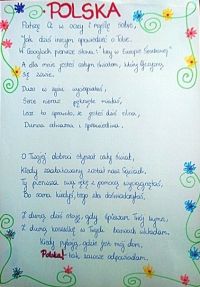 POLSKA
Patrzę Ci w oczy i myślę sobie,
Jak dziś innym opowiedzieć o Tobie.
W Googlach pierwsze słowa: "kraj w Europie Środkowej"
A dla mnie jesteś całym światem, który Ojczyzną
się zowie.
Dużo w życiu wycierpiałaś,
Serce nieraz pęknięte miałaś,
Lecz to sprawiło, że jesteś dziś silna,
Dumna odważna i sprawiedliwa.
O Twojej dobroci słyszał cały świat,
Kiedy zaatakowany został nasz Sąsiad.
Ty pierwsza swą rękę z pomocą wyciągnęłaś,
Bo sama kiedyś tego doświadczyłaś.
Z dumą dziś stoję, gdy śpiewam Twój hymn,
Z dumą koszulkę w Twych barwach wkładam.
Kiedy pytają, gdzie jest mój dom,
Polska! - tak zawsze odpowiadam.